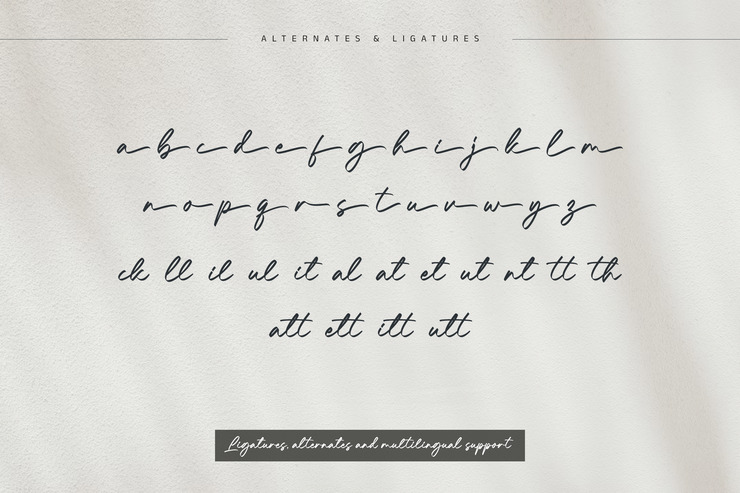 ALTERNATES & LIGATURES
a b c d e f g h i j k l m
n o p q r s t u v w y z
ck ll il ul it al at et ut nt tt th
att ett itt utt
Ligatures, alternates and multilingual support